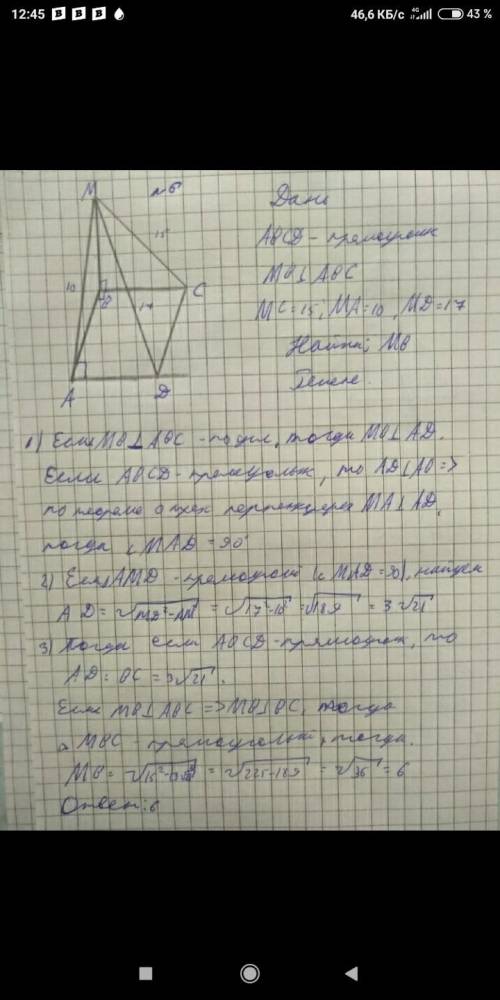 12:45 46,6 КБ/с 4G 43 %
М №6
15
10
В 17 С
А D
Дано
ABCD - прямоугольн
MB⊥ABC
MC=15; MA=10, MD=17
Найти: MB
1) Если MB⊥ABC - по усл, тогда MB⊥AD.
Если ABCD - прямоугольн, то AD⊥AB =>
по теореме о трех перпендикулярах MA⊥AD,
тогда ∠MAD = 90°
2) Если △AMD - прямоугольн (∠MAD=90), найдем
AD = √MD²-AM² = √17²-10² = √189 = 3√21
3) Тогда если ABCD - прямоугольн, то
AD = BC = 3√21.
Если MB⊥ABC => MB⊥BC, тогда
△MBC - прямоугольн, тогда.
= √225-189 = √36 = 6
Ответ: 6